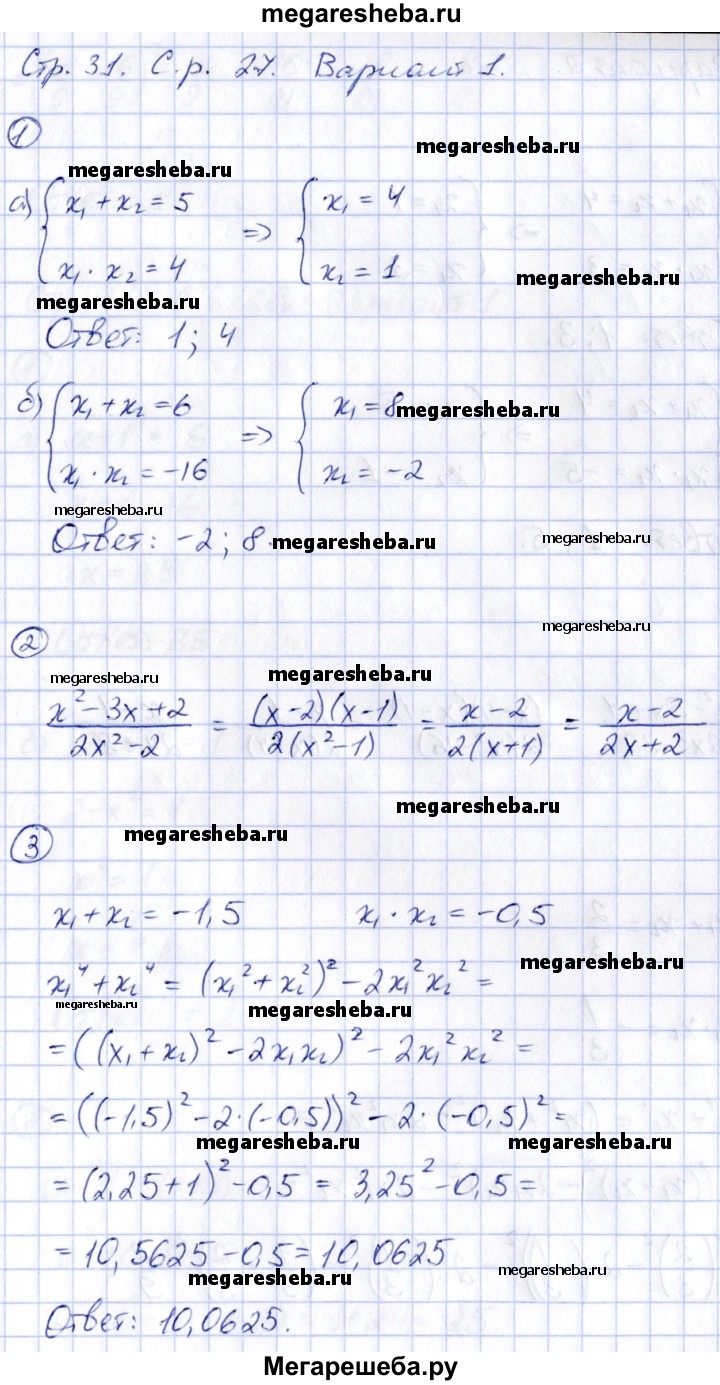 megaresheba.ru
Стр. 31. С.р. 27. Вариант 1.
1
megaresheba.ru
megaresheba.ru
а) { x₁ + x₂ = 5 => { x₁ = 4
x₁ · x₂ = 4 x₂ = 1
megaresheba.ru
megaresheba.ru
Ответ: 1; 4
б) { x₁ + x₂ = 6 => { x₁ = 8
megaresheba.ru
x₁ · x₂ = -16 x₂ = -2
megaresheba.ru
Ответ: -2; 8.
megaresheba.ru
megaresheba.ru
megaresheba.ru
2
megaresheba.ru
megaresheba.ru
(x² - 3x + 2)/(2x² - 2) = ((x-2)(x-1))/(2(x²-1)) = (x-2)/(2(x+1)) = (x-2)/(2x+2)
megaresheba.ru
3
megaresheba.ru
x₁ + x₂ = -1,5 x₁ · x₂ = -0,5
megaresheba.ru
x₁⁴ + x₂⁴ = (x₁² + x₂²)² - 2x₁²x₂² =
megaresheba.ru
megaresheba.ru
= ((x₁ + x₂)² - 2x₁x₂)² - 2x₁²x₂² =
= ((-1,5)² - 2·(-0,5))² - 2·(-0,5)² =
megaresheba.ru
megaresheba.ru
= (2,25+1)² - 0,5 = 3,25² - 0,5 =
= 10,5625 - 0,5 = 10,0625
megaresheba.ru
megaresheba.ru
Ответ: 10,0625.
Мегарешеба.ру